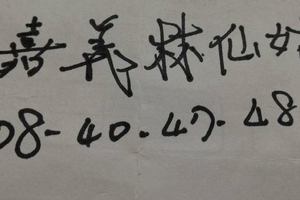 嘉義林仙女
08-40.47.48